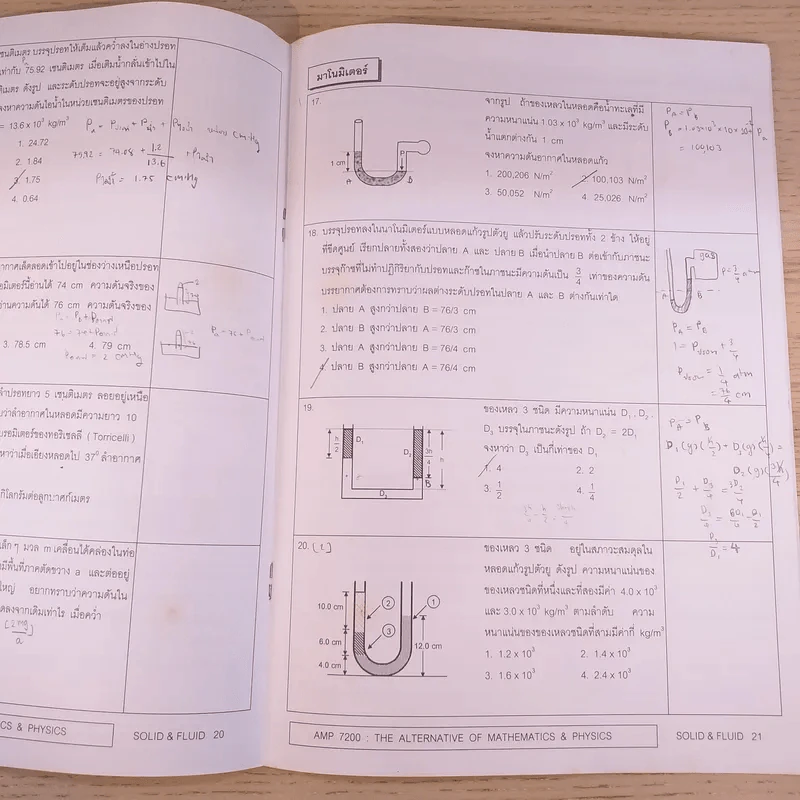 เซนติเมตร บรรจุปรอทให้เต็มแล้วคว่ำลงในอ่างปรอท
เท่ากับ 75.92 เซนติเมตร เมื่อเติมน้ำกลั่นเข้าไปใน
ติเมตร ดังรูป และระดับปรอทจะอยู่สูงจากระดับ
จงหาความดันไอน้ำในหน่วยเซนติเมตรของปรอท
= 13.6 x 10³ kg/m³
1. 24.72
2. 1.84
3. 1.75
4. 0.64
75.92 = 74.08 + 1.2/13.6 +
= 1.75 cmHg
อากาศเล็ดลอดเข้าไปอยู่ในช่องว่างเหนือปรอท
มิเตอร์นี้อ่านได้ 74 cm ความดันจริงของ
อ่านความดันได้ 76 cm ความดันจริงของ
3. 78.5 cm 4. 79 cm
ลำปรอทยาว 5 เซนติเมตร ลอยอยู่เหนือ
บว่าลำอากาศในหลอดมีความยาว 10
บารอมิเตอร์ของทอริเชลลี (Torricelli)
หาว่าเมื่อเอียงหลอดไป 37⁰ ลำอากาศ
กิโลกรัมต่อลูกบาศก์เมตร
เล็กๆ มวล m เคลื่อนได้คล่องในท่อ
งมีพื้นที่ภาคตัดขวาง a และต่ออยู่
ใหญ่ อยากทราบว่าความดันใน
ดลงจากเดิมเท่าไร เมื่อคว่ำ
[2mg/a]
CS & PHYSICS
SOLID & FLUID 20
มาโนมิเตอร์
17.
จากรูป ถ้าของเหลวในหลอดคือน้ำทะเลที่มี
ความหนาแน่น 1.03 x 10³ kg/m³ และมีระดับ
น้ำแตกต่างกัน 1 cm
จงหาความดันอากาศในหลอดแก้ว
1. 200,206 N/m² 2. 100,103 N/m²
3. 50,052 N/m² 4. 25,026 N/m²
1 cm
A B
P_A = P_B
= 100,103
18. บรรจุปรอทลงในมาโนมิเตอร์แบบหลอดแก้วรูปตัวยู แล้วปรับระดับปรอททั้ง 2 ข้าง ให้อยู่
ที่ขีดศูนย์ เรียกปลายทั้งสองว่าปลาย A และ ปลาย B เมื่อนำปลาย B ต่อเข้ากับภาชนะ
บรรจุก๊าซที่ไม่ทำปฏิกิริยากับปรอทและก๊าซในภาชนะมีความดันเป็น 3/4 เท่าของความดัน
บรรยากาศต้องการทราบว่าผลต่างระดับปรอทในปลาย A และ B ต่างกันเท่าใด
1. ปลาย A สูงกว่าปลาย B = 76/3 cm
2. ปลาย B สูงกว่าปลาย A = 76/3 cm
3. ปลาย A สูงกว่าปลาย B = 76/4 cm
4. ปลาย B สูงกว่าปลาย A = 76/4 cm
gas
P = 3/4 atm
A B
P_A = P_B
1 = P_ปรอท + 3/4
P_ปรอท = 1/4 atm
= 76/4 cm
19.
ของเหล 3 ชนิด มีความหนาแน่น D₁, D₂,
D₃ บรรจุในภาชนะดังรูป ถ้า D₂ = 2D₁
จงหาว่า D₃ เป็นกี่เท่าของ D₁
1. 4 2. 2
3. 1/2 4. 1/4
h/2 D₁ D₂ 3h/4 h
D₃
B
P_A = P_B
D₁(g)(h/2) + D₃(g)(h/4) =
D₂(g)(3h/4)
D₁/2 + D₃/4 = 3D₂/4
D₃/D₁ = 4
20. [1]
ของเหลว 3 ชนิด อยู่ในสภาวะสมดุลใน
หลอดแก้วรูปตัวยู ดังรูป ความหนาแน่นของ
ของเหลวชนิดที่หนึ่งและที่สองมีค่า 4.0 x 10³
และ 3.0 x 10³ kg/m³ ตามลำดับ ความ
หนาแน่นของของเหลวชนิดที่สามมีค่ากี่ kg/m³
1. 1.2 x 10³ 2. 1.4 x 10³
3. 1.6 x 10³ 4. 2.4 x 10³
10.0 cm
6.0 cm
4.0 cm
12.0 cm
1
2
3
AMP 7200 : THE ALTERNATIVE OF MATHEMATICS & PHYSICS
SOLID & FLUID 21